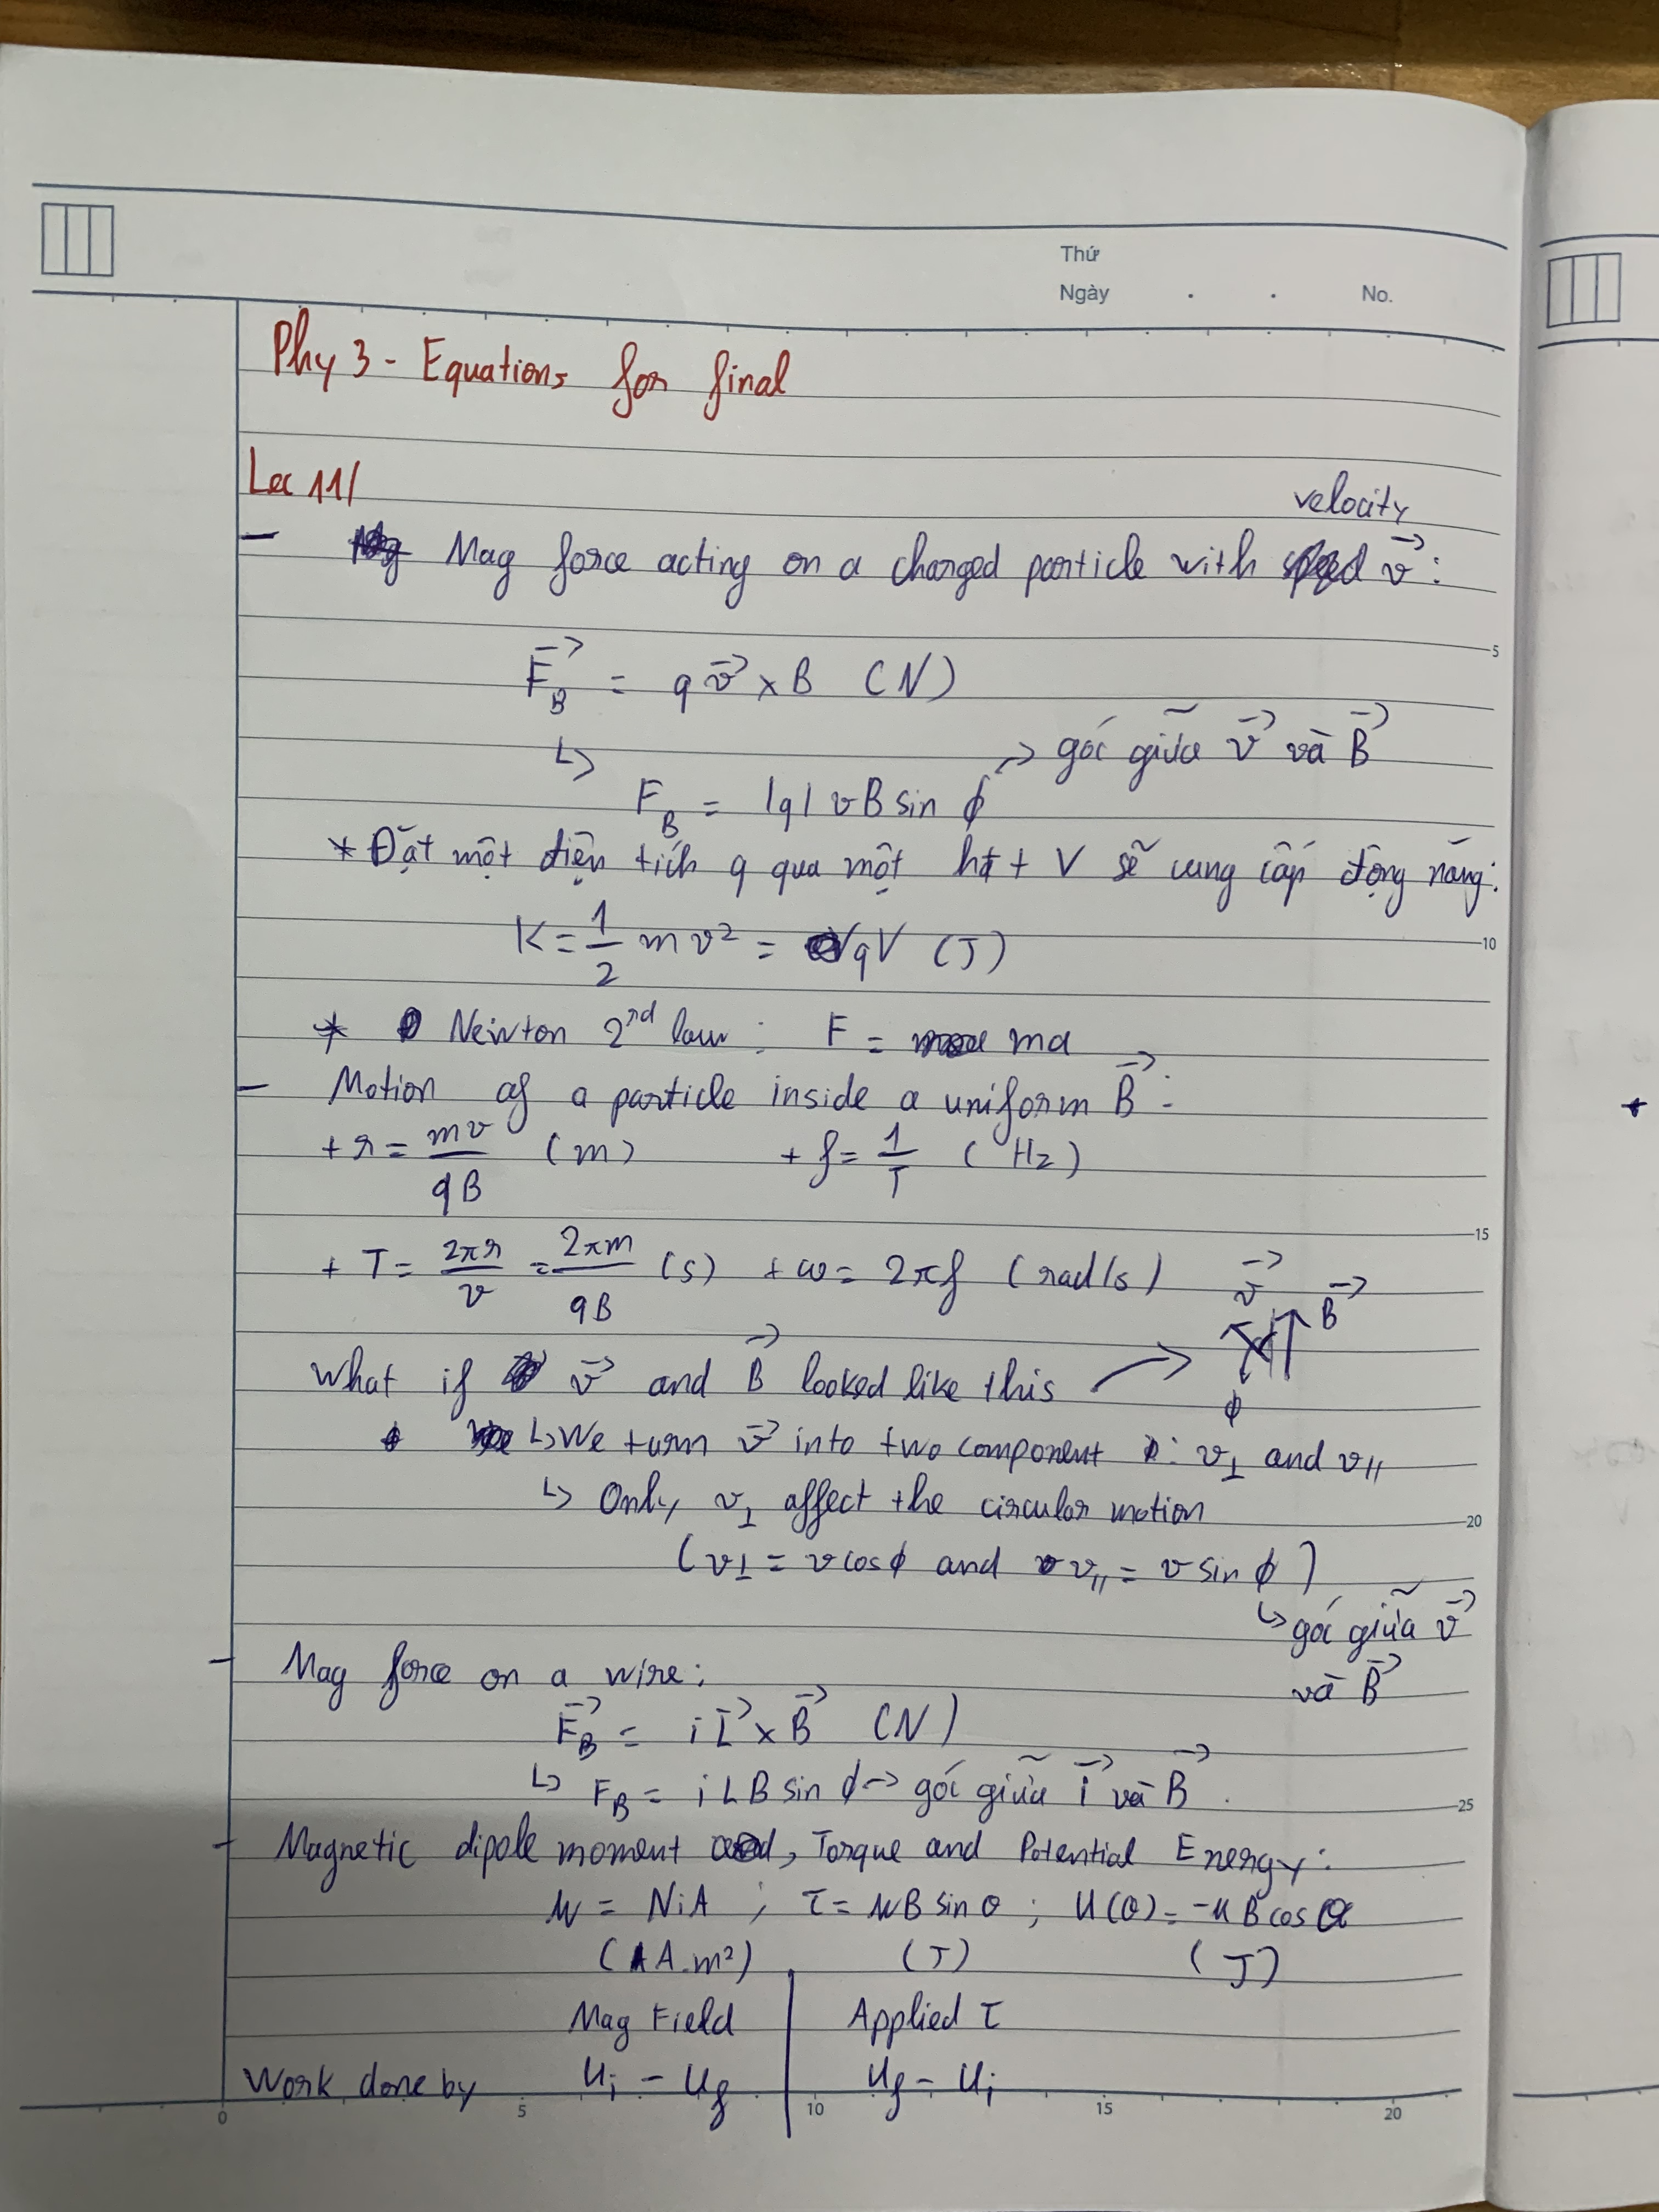 Thứ
Ngày . . No.
Phy 3 - Equations for final
Lec 11/
velocity
- Mag force acting on a charged particle with v⃗ :
F⃗_B = q v⃗ × B (N)
↳ → góc giữa v⃗ và B⃗
F_B = |q| v B sin ϕ
* Đặt một điện tích q qua một hđt V sẽ cung cấp động năng:
K = 1/2 m v² = qV (J)
* Newton 2nd law : F = ma
- Motion of a particle inside a uniform B⃗ :
+ r = mv/qB (m) + f = 1/T (Hz)
+ T = 2πr/v = 2πm/qB (s) + ω = 2πf (rad/s) v⃗ B⃗
What if v⃗ and B⃗ looked like this → ϕ
↳ We turn v⃗ into two component : v⊥ and v//
↳ Only v⊥ affect the circular motion
(v⊥ = v cos ϕ and v// = v sin ϕ)
↳ góc giữa v⃗
và B⃗
- Mag force on a wire :
F⃗_B = i L⃗ × B⃗ (N)
↳ F_B = i L B sin ϕ → góc giữa i⃗ và B⃗ .
- Magnetic dipole moment , Torque and Potential Energy :
μ = NiA ; τ = μB sin θ ; U(θ) = -μ B cos θ
(A.m²) (J) (J)
Mag Field | Applied τ
Work done by U_i - U_f | U_f - U_i
5
10
15
20
25
0 5 10 15 20